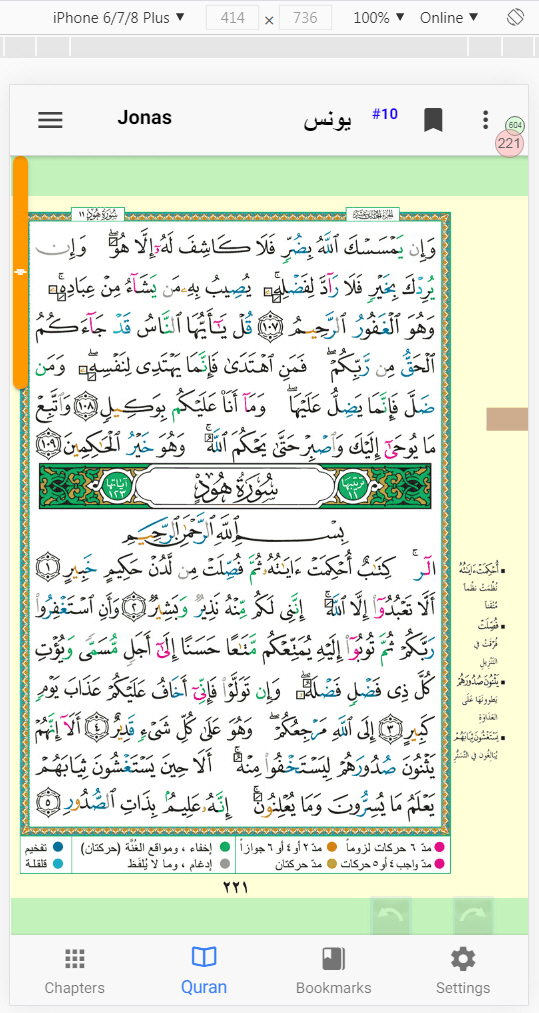 iPhone 6/7/8 Plus ▼ 414 × 736 100% ▼ Online ▼
Jonas يونس #10
604
221
سُورَةُ هُودٍ ١١
وَإِن يَمْسَسْكَ اللَّهُ بِضُرٍّ فَلَا كَاشِفَ لَهُ إِلَّا هُوَ ۖ وَإِن
يُرِدْكَ بِخَيْرٍ فَلَا رَادَّ لِفَضْلِهِ ۚ يُصِيبُ بِهِ مَن يَشَاءُ مِنْ عِبَادِهِ ۚ
وَهُوَ الْغَفُورُ الرَّحِيمُ ١٠٧ قُلْ يَا أَيُّهَا النَّاسُ قَدْ جَاءَكُمُ
الْحَقُّ مِن رَّبِّكُمْ ۖ فَمَنِ اهْتَدَىٰ فَإِنَّمَا يَهْتَدِي لِنَفْسِهِ ۖ وَمَن
ضَلَّ فَإِنَّمَا يَضِلُّ عَلَيْهَا ۖ وَمَا أَنَا عَلَيْكُم بِوَكِيلٍ ١٠٨ وَاتَّبِعْ
مَا يُوحَىٰ إِلَيْكَ وَاصْبِرْ حَتَّىٰ يَحْكُمَ اللَّهُ ۚ وَهُوَ خَيْرُ الْحَاكِمِينَ ١٠٩
ترتيبها ١١ سُورَةُ هُودٍ آياتها ١٢٣
بِسْمِ اللَّهِ الرَّحْمَٰنِ الرَّحِيمِ
الر ۚ كِتَابٌ أُحْكِمَتْ آيَاتُهُ ثُمَّ فُصِّلَتْ مِن لَّدُنْ حَكِيمٍ خَبِيرٍ ١
أَلَّا تَعْبُدُوا إِلَّا اللَّهَ ۚ إِنَّنِي لَكُم مِّنْهُ نَذِيرٌ وَبَشِيرٌ ٢ وَأَنِ اسْتَغْفِرُوا
رَبَّكُمْ ثُمَّ تُوبُوا إِلَيْهِ يُمَتِّعْكُم مَّتَاعًا حَسَنًا إِلَىٰ أَجَلٍ مُّسَمًّى وَيُؤْتِ
كُلَّ ذِي فَضْلٍ فَضْلَهُ ۖ وَإِن تَوَلَّوْا فَإِنِّي أَخَافُ عَلَيْكُمْ عَذَابَ يَوْمٍ
كَبِيرٍ ٣ إِلَى اللَّهِ مَرْجِعُكُمْ ۖ وَهُوَ عَلَىٰ كُلِّ شَيْءٍ قَدِيرٌ ٤ أَلَا إِنَّهُمْ
يَثْنُونَ صُدُورَهُمْ لِيَسْتَخْفُوا مِنْهُ ۚ أَلَا حِينَ يَسْتَغْشُونَ ثِيَابَهُمْ
يَعْلَمُ مَا يُسِرُّونَ وَمَا يُعْلِنُونَ ۚ إِنَّهُ عَلِيمٌ بِذَاتِ الصُّدُورِ ٥
أُحْكِمَتْ آيَاتُهُ
نُظِمَتْ نَظْماً
مُتْقَناً
فُصِّلَتْ
فُرِّقَتْ فِي
التَّنْزِيلِ
يَثْنُونَ صُدُورَهُمْ
يَطْوُونَهَا عَلَى
العَدَاوَةِ
يَسْتَغْشُونَ ثِيَابَهُمْ
يُبَالِغُونَ فِي التَّسَتُّرِ
مدّ ٦ حركات لزوماً مدّ ٢ أو ٤ أو ٦ جوازاً إخفاء، ومواقع الغُنَّة (حركتان) تفخيم
مدّ واجب ٤ أو ٥ حركات مدّ حركتان إدغام، وما لا يُلفَظ قلقلة
٢٢١
Chapters Quran Bookmarks Settings